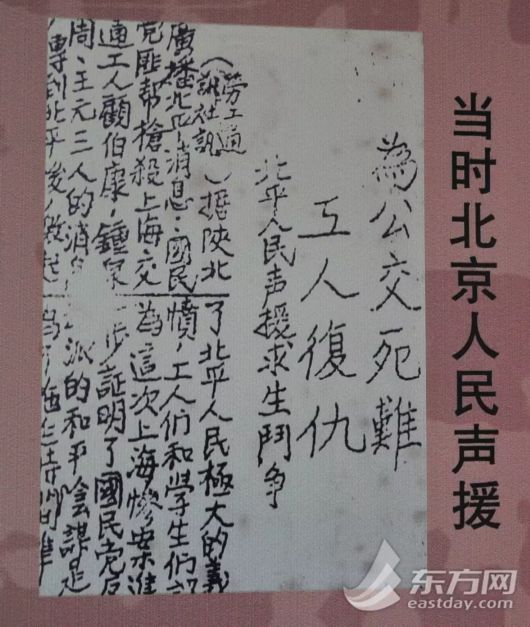 当时北京人民声援
為公交死難
工人復仇
北平人民声援求生鬥争
（勞工通
訊社訊）據陝北
廣播北平消息：國民
党匪幫槍殺上海交
通工人顧伯康，鍾泉
周、王元三人的消息
專到北平後，激起
了北平人民極大的義
憤，工人们和學生们認
為這次上海慘案進
步証明了國民党反
派的和平陰謀是
為了
东方网
eastday.com